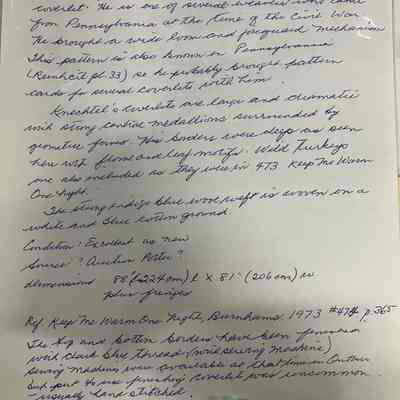 coverlet. He is one of several weavers who came
from Pennsylvania at the time of the Civil War.
He brought a wide loom and jacquard mechanism
This pattern is also known in Pennsylvania
(Reinhert pl. 33) so he probably brought pattern
cards for several coverlets with him.
Knechtel's coverlets are large and dramatic
with strong central medallions surrounded by
geometric forms. His borders were deep as seen
here with floral and leaf motifs. Wild Turkeys
are also included as they were in 473 Keep Me Warm
One Night.
The strong indigo blue wool weft is woven on a
white and blue cotton ground
Condition: Excellent as new
Source? Auction Porter?
dimensions 88" (224 cm) l x 81" (206 cm) w
plus fringes
Ref. Keep Me Warm One Night, Burnhams, 1973 #474 p. 365
The top and bottom borders have been finished
with dark blue thread (with sewing machine)
sewing machines were available at that time in Ontario
but to use finishing coverlet was uncommon.
- usually hand stitched.